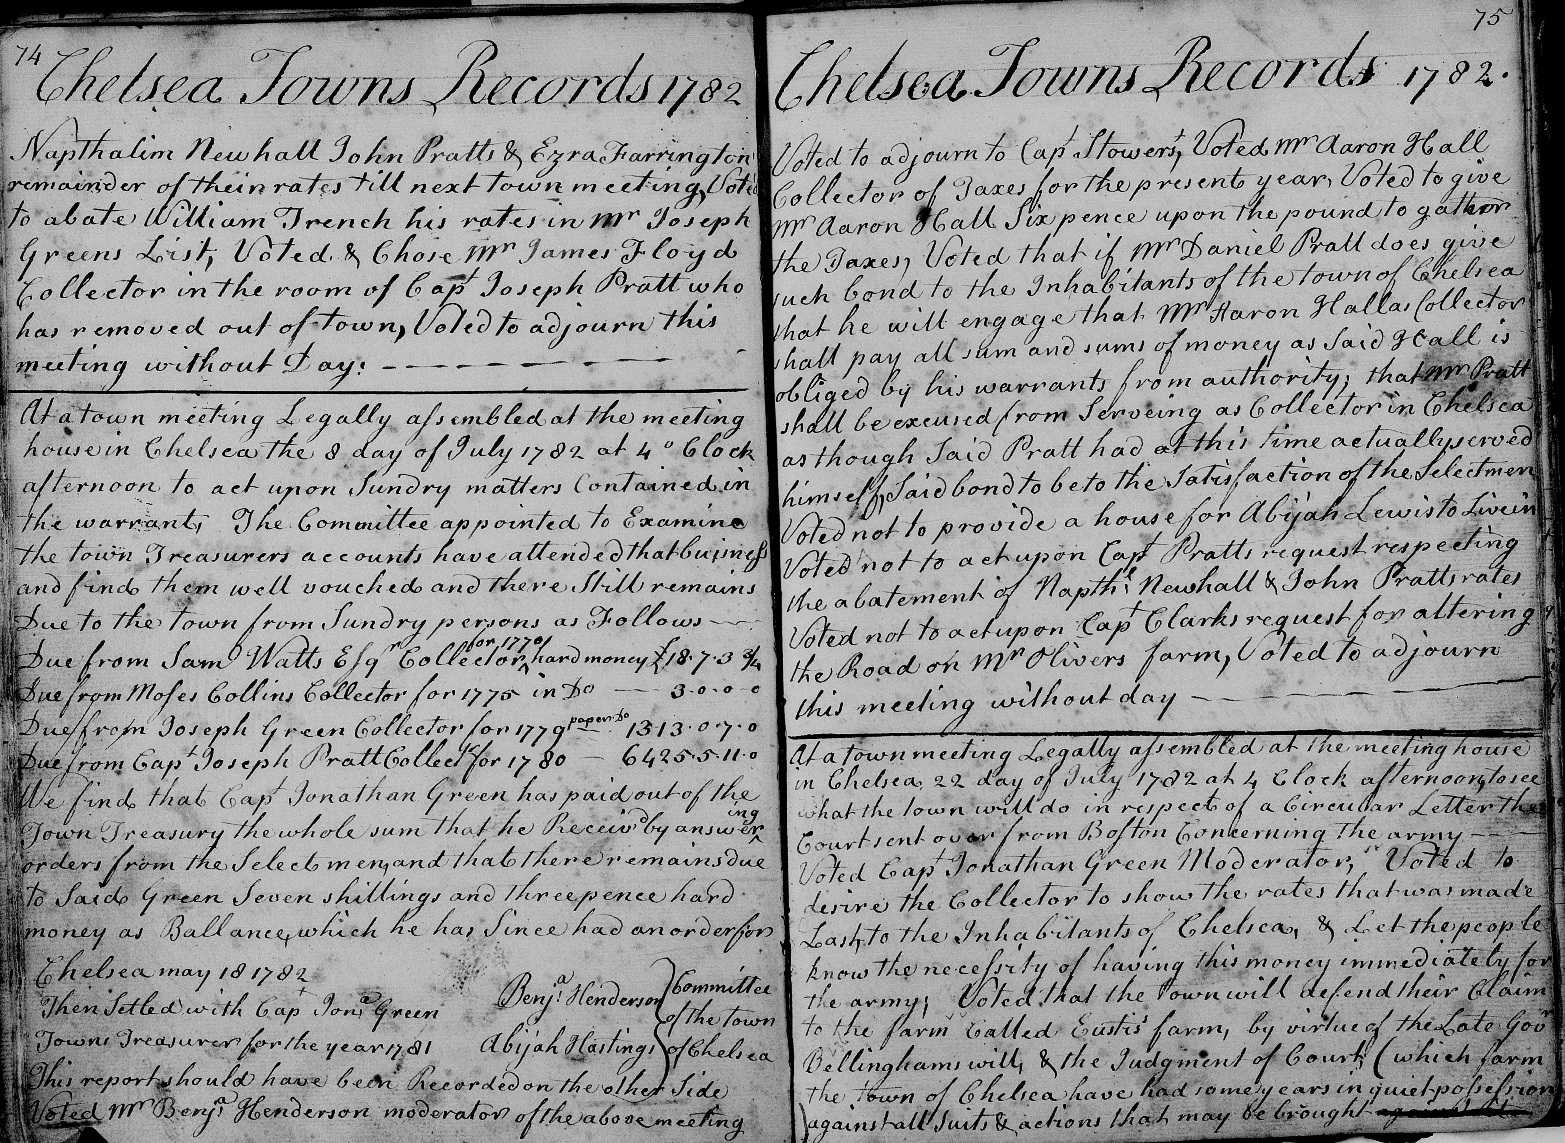 74
Chelsea Towns Records 1782
Napthalim Newhall John Pratts & Ezra Farrington
remainder of their rates till next town meeting, Voted
to abate William Trench his rates in Mr Joseph
Greens List, Voted & Chose Mr James Floyd
Collector in the room of Capt Joseph Pratt who
has removed out of town, Voted to adjourn this
meeting without Day:
At a town meeting Legally assembled at the meeting
house in Chelsea the 8 day of July 1782 at 4 o Clock
afternoon to act upon Sundry matters Contained in
the warrant, The Committee appointed to Examine
the town Treasurers accounts have attended that buisness
and find them well vouched and there Still remains
Due to the town from Sundry persons as Follows
Due from Saml Watts Esqr Collector for 1770 hard money £18·7·3 3/4
Due from Moses Collins Collector for 1775 in Do 3·0·0·0
Due from Joseph Green Collector for 1779 paper Do 1313·0·7·0
Due from Capt Joseph Pratt Collectr for 1780 6425·5·11·0
We find that Capt Jonathan Green has paid out of the
Town Treasury the whole sum that he Receivd by answering
orders from the Select men, and that there remains due
to Said Green Seven shillings and three pence hard
money as Ballance, which he has Since had an order for
Chelsea may 18 1782
Then Setled with Capt Jona Green
Towns Treasurer for the year 1781
Benja Henderson
Abijah Hastings
Committee
of the town
of Chelsea
This report should have been Recorded on the other Side
Voted Mr Benja Henderson moderator of the above meeting
75
Chelsea Towns Records 1782.
Voted to adjourn to Capt Stowers, Voted Mr Aaron Hall
Collector of Taxes for the present year, Voted to give
Mr Aaron Hall Six pence upon the pound to gather
the Taxes, Voted that if Mr Daniel Pratt does give
such bond to the Inhabitants of the town of Chelsea
that he will engage that Mr Aaron Hall as Collector
shall pay all sum and sums of money as Said Hall is
obliged by his warrants from authority; that Mr Pratt
shall be excused from Serveing as Collector in Chelsea
as though Said Pratt had at this time actually served
himself, Said bond to be to the Satisfaction of the Selectmen
Voted not to provide a house for Abijah Lewis to Live in
Voted not to act upon Capt Pratts request respecting
the abatement of Napthl Newhall & John Pratts rates
Voted not to act upon Capt Clarks request for altering
the Road on Mr Olivers farm, Voted to adjourn
this meeting without day
At a town meeting Legally assembled at the meeting house
in Chelsea 22 day of July 1782 at 4 Clock afternoon, to see
what the town will do in respect of a Circular Letter the
Court sent over from Boston Concerning the army
Voted Capt Jonathan Green Moderator, Voted to
desire the Collector to show the rates that was made
Last, to the Inhabitants of Chelsea, & Let the people
know the necessity of having this money immediately for
the army; Voted that the Town will defend their Claim
to the farm Called Eustis farm, by virtue of the Late Govr
Bellinghams will, & the Judgment of Court, (which farm
the town of Chelsea have had some years in quiet possession
against all Suits & actions that may be brought